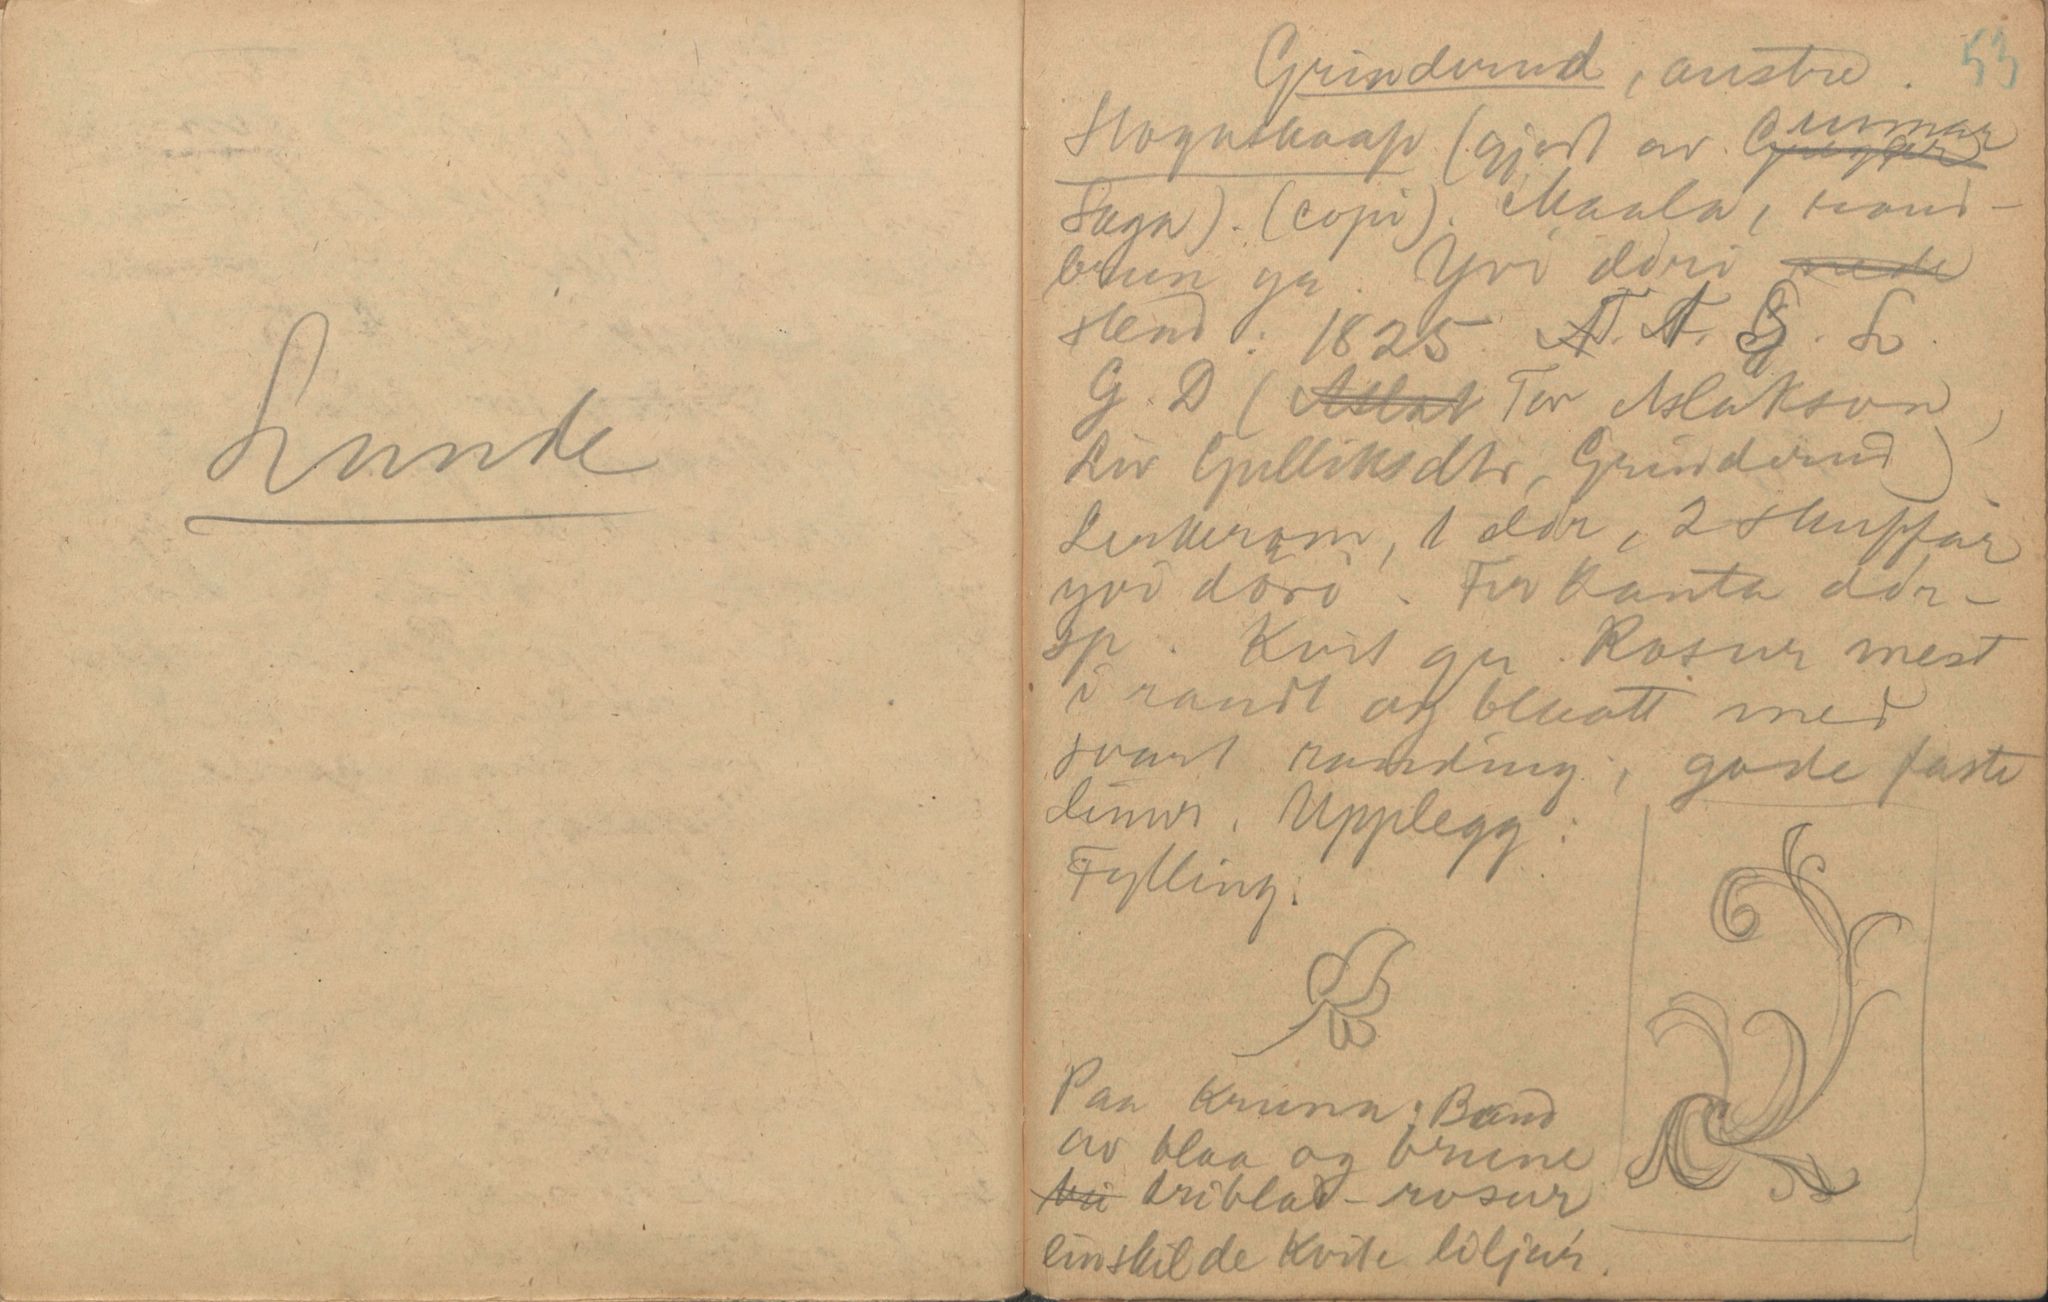 Lunde
Grinderud, austre. 53
Slogutskaap (gjort av Gunnar
Saga). (copi). Maala, raud-
brun gr. Yvi döri
stend: 1825 T. A. S. L.
G. D ( Aslak Tor Aslakson,
Liv Gulliksdtr, Grinderud)
Lukerom, 1 dör, 2 skuffur
yvi döri. Firkanta dör-
sp. Kvit gr. Rosur mest
i raudt og blaatt med
svart randing, gode faste
linur. Upplegg:
Fylling:
Paa Kruna: Band
av blaa og brune
triblad-rosur
einskilde kvite liljur.